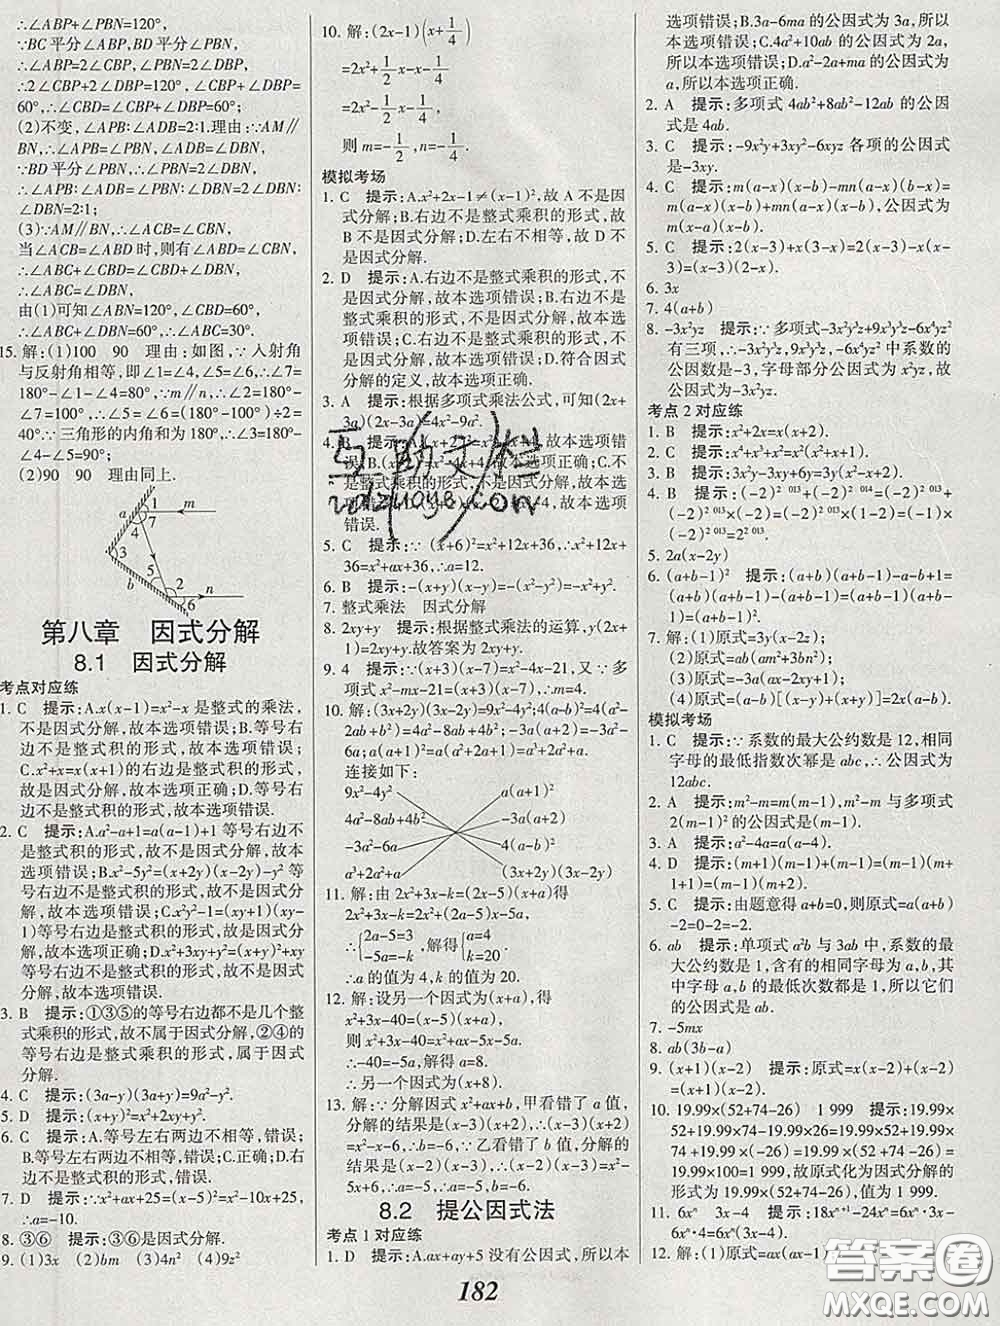 ∴∠ABP+∠PBN=120°,
∵BC平分∠ABP,BD平分∠PBN,
∴∠ABP=2∠CBP,∠PBN=2∠DBP,
∴2∠CBP+2∠DBP=120°,∠CBP+∠DBP=
60°,∴∠CBD=∠CBP+∠DBP=60°;
(2)不变,∠APB∶∠ADB=2∶1.理由:∵AM∥
BN,∴∠APB=∠PBN,∠ADB=∠DBN,
∵BD平分∠PBN,∴∠PBN=2∠DBN,
∴∠APB∶∠ADB=∠PBN∶∠DBN=2∠DBN∶
∠DBN=2∶1;
(3)∵AM∥BN,∴∠ACB=∠CBN,
当∠ACB=∠ABD时,则有∠ABD=∠CBN,
∴∠ABC+∠CBD=∠CBD+∠DBN,
∴∠ABC=∠DBN,
由(1)可知∠ABN=120°,∠CBD=60°,
∴∠ABC+∠DBN=60°,∴∠ABC=30°.
15.解:(1)100 90 理由:如图,∵入射角
与反射角相等,即∠1=∠4,∠5=∠6,∴∠7=
180°-∠1-∠4=80°,∵m∥n,∴∠2=180°-
∠7=100°,∴∠5=∠6=(180°-100°)÷2=
40°∵三角形的内角和为180°,∴∠3=180°-
∠4-∠5=90°;
(2)90 90 理由同上.
a 1 7 m
4
3
b 5 2 n
6
第八章 因式分解
8.1 因式分解
考点对应练
1. C 提示:A.x(x-1)=x²-x是整式的乘法,
不是因式分解,故本选项错误;B.等号右
边不是整式积的形式,故本选项错误;
C.x²+x=x(x+1)的右边是整式积的形式,
是因式分解,故本选项正确;D.等号右边
不是整式积的形式,故本选项错误.
2. C 提示:A.a²-a+1=a(a-1)+1等号右边不
是整式积的形式,故不是因式分解,故本
选项错误;B.x²-5y²=(x+2y)(x-2y)-y²等
号右边不是整式积的形式,故不是因式分
解,故本选项错误;C.x²y²-1=(xy+1)(xy-
1)等号右边是整式积的形式,故是因式分
解,故本选项正确;D.x²+3xy+y²=(x+y)²+xy
等号右边不是整式积的形式,故不是因式
分解,故本选项错误.
3. B 提示:①③⑤的等号右边都不是几个整
式乘积的形式,故不属于因式分解,②④的
等号右边是整式乘积的形式,属于因式
分解.
4. C 提示:(3a-y)(3a+y)=9a²-y².
5. D 提示:(x+y)²=x²+2xy+y².
6. C 提示:A.等号左右两边不相等,错误;
B.等号左右两边不相等,错误;D.右边不是
整式积的形式,错误.
7. D 提示:∵x²+ax+25=(x-5)²=x²-10x+25,
∴a=-10.
8. ③⑥ 提示:③⑥是因式分解.
9. (1)3x (2)bm (3)4n² (4)9z²
10. 解:(2x-1)(x+1/4)
=2x²+1/2x-x-1/4
=2x²-1/2x-1/4,
则m=-1/2,n=-1/4.
模拟考场
1. C 提示:A.x²+2x-1≠(x-1)²,故A不是因
式分解;B.右边不是整式乘积的形式,故
B不是因式分解;D.左右不相等,故D不
是因式分解.
2. D 提示:A.右边不是整式乘积的形式,不
是因式分解,故本选项错误;B.右边不是
整式乘积的形式,不是因式分解,故本选
项错误;C.右边不是整式乘积的形式,不
是因式分解,故本选项错误;D.符合因式
分解的定义,故本选项正确.
3. A 提示:根据多项式乘法公式,可知(2x+
3a)(2x-3a)=4x²-9a².
误;C.右边不
是整式乘积的形式,不是因式分解,故本选项
错误.
5. C 提示:∵(x+6)²=x²+12x+36,∴x²+12x+
36=x²+ax+36,∴a=12.
6. B 提示:-(x+y)(x-y)=-(x²-y²)=-x²+y².
7. 整式乘法 因式分解
8. 2xy+y 提示:根据整式乘法的运算,y(2x+
1)=2xy+y.故答案为2xy+y.
9. 4 提示:∵(x+3)(x-7)=x²-4x-21,又∵多
项式x²-mx-21=(x+3)(x-7),∴m=4.
10. 解:(3x+2y)(3x-2y)=9x²-4y²;4(a-b)²=4(a²-
2ab+b²)=4a²-8ab+4b²;-3a(a+2)=-3a²-
6a;a(a+1)²=a(a²+2a+1)=a³+2a²+a.
连接如下:
9x²-4y² a(a+1)²
4a²-8ab+4b² -3a(a+2)
-3a²-6a 4(a-b)²
a³+2a²+a (3x+2y)(3x-2y)
11. 解:由2x²+3x-k=(2x-5)(x+a)得
2x²+3x-k=2x²+(2a-5)x-5a,
∴{2a-5=3 -5a=-k,解得{a=4 k=20.
∴a的值为4,k的值为20.
12. 解:设另一个因式为(x+a),得
x²+3x-40=(x-5)(x+a)
则x²+3x-40=x²+ax-5x-5a.
∴-40=-5a,解得a=8.
∴另一个因式为(x+8).
13. 解:∵分解因式x²+ax+b,甲看错了a值,
分解的结果是(x-3)(x+2),∴(x-3)(x+2)
=x²-x-6,∴b=-6,∵乙看错了b值,分解的
结果是(x-2)(x-3),∴(x-2)(x-3)=x²-
5x+6,∴a=-5,∴a=-5,b=-6.
8.2 提公因式法
考点1对应练
1. D 提示:A.ax+ay+5没有公因式,所以本
选项错误;B.3a-6ma的公因式为3a,所以
本选项错误;C.4a²+10ab的公因式为2a,
所以本选项错误;D.a²-2a+ma的公因式为
a,所以本选项正确.
2. A 提示:多项式4ab²+8ab²-12ab的公因
式是4ab.
3. C 提示:-9x²y+3xy²-6xyz各项的公因式
是-3xy.
4. C 提示:m(a-x)(x-b)-mn(a-x)(b-x)=
m(a-x)(x-b)+mn(a-x)(x-b),公因式为
m(x-a)(x-b).
5. C 提示:2(x-3)+x(3-x)=2(x-3)-x(x-
3)=(x-3)(2-x).
6. 3x
7. 4(a+b)
8. -3x²yz 提示:∵多项式-3x²y³z+9x³y³z-6x⁴yz²
有三项,∴-3x²y³z,9x³y³z,-6x⁴yz²中系数的
公因数是-3,字母部分公因式为x²yz,故
公因式为-3x²yz.
考点2对应练
1. B 提示:x²+2x=x(x+2).
2. C 提示:x²+x²+x²=x²(x+1).
3. B 提示:3x²y-3xy+6y=3y(x²-x+2).
4. B 提示:(-2)²⁰¹³+(-2)²⁰¹⁴=(-2)²⁰¹³+
(-2)²⁰¹³×(-2)=(-2)²⁰¹³×(1-2)=(-1)×
(-2)²⁰¹³=2²⁰¹³.
5. 2a(x-2y)
6. (a+b-1)² 提示:(a+b)(a+b-1)-a-b+1=
(a+b)(a+b-1)-(a+b-1)=(a+b-1)(a+
b-1)=(a+b-1)².
7. 解:(1)原式=3y(x-2z);
(2)原式=(a-b)(m+n-1);
(3)原式=-3a(ax-2xy+1);
(4)原式=(x-a)[(x+a)+(x-a)]=2x(x-a).
模拟考场
1. C 提示:∵系数的最大公约数是12,相同
字母的最低指数次幂是abc,∴公因式为
12abc.
2. A 提示:m²-m=m(m-1),m²-m与多项式
2(m-1)²的公因式是(m-1).
3. A 提示:a²-4a=a(a-4).
4. D 提示:(m+1)(m-1)+(m-1)=(m-1)(m+
1+1)=(m-1)(m+2).
5. C 提示:由题意得a+b=0,原式=a(a+b)
-2=0-2=-2.
6. ab 提示:单项式a²b与3ab中,系数的最
大公约数是1,含有的相同字母为a,b,其
中字母a,b的最低次数都是1,所以它们
的公因式是ab.
7. -5mx
8. ab(3b-a)
9. (x+1)(x-2) 提示:原式=x(x-2)+(x-2)
=(x+1)(x-2).
10. 19.99×(52+74-26) 1 999 提示:19.99×
52+19.99×74-19.99×26=19.99×(52+
74-26),19.99×(52+74-26)=19.99×
100=1 999,故原式化为因式分解的
形式为19.99×(52+74-26),值为1 999.
11. 6xⁿ 3x-4 提示:18xⁿ⁺¹-24xⁿ=6xⁿ·3x-
6xⁿ·4=6xⁿ(3x-4).
12. 解:(1)原式=ax(ax-1
182
答案圈
MXQE.COM